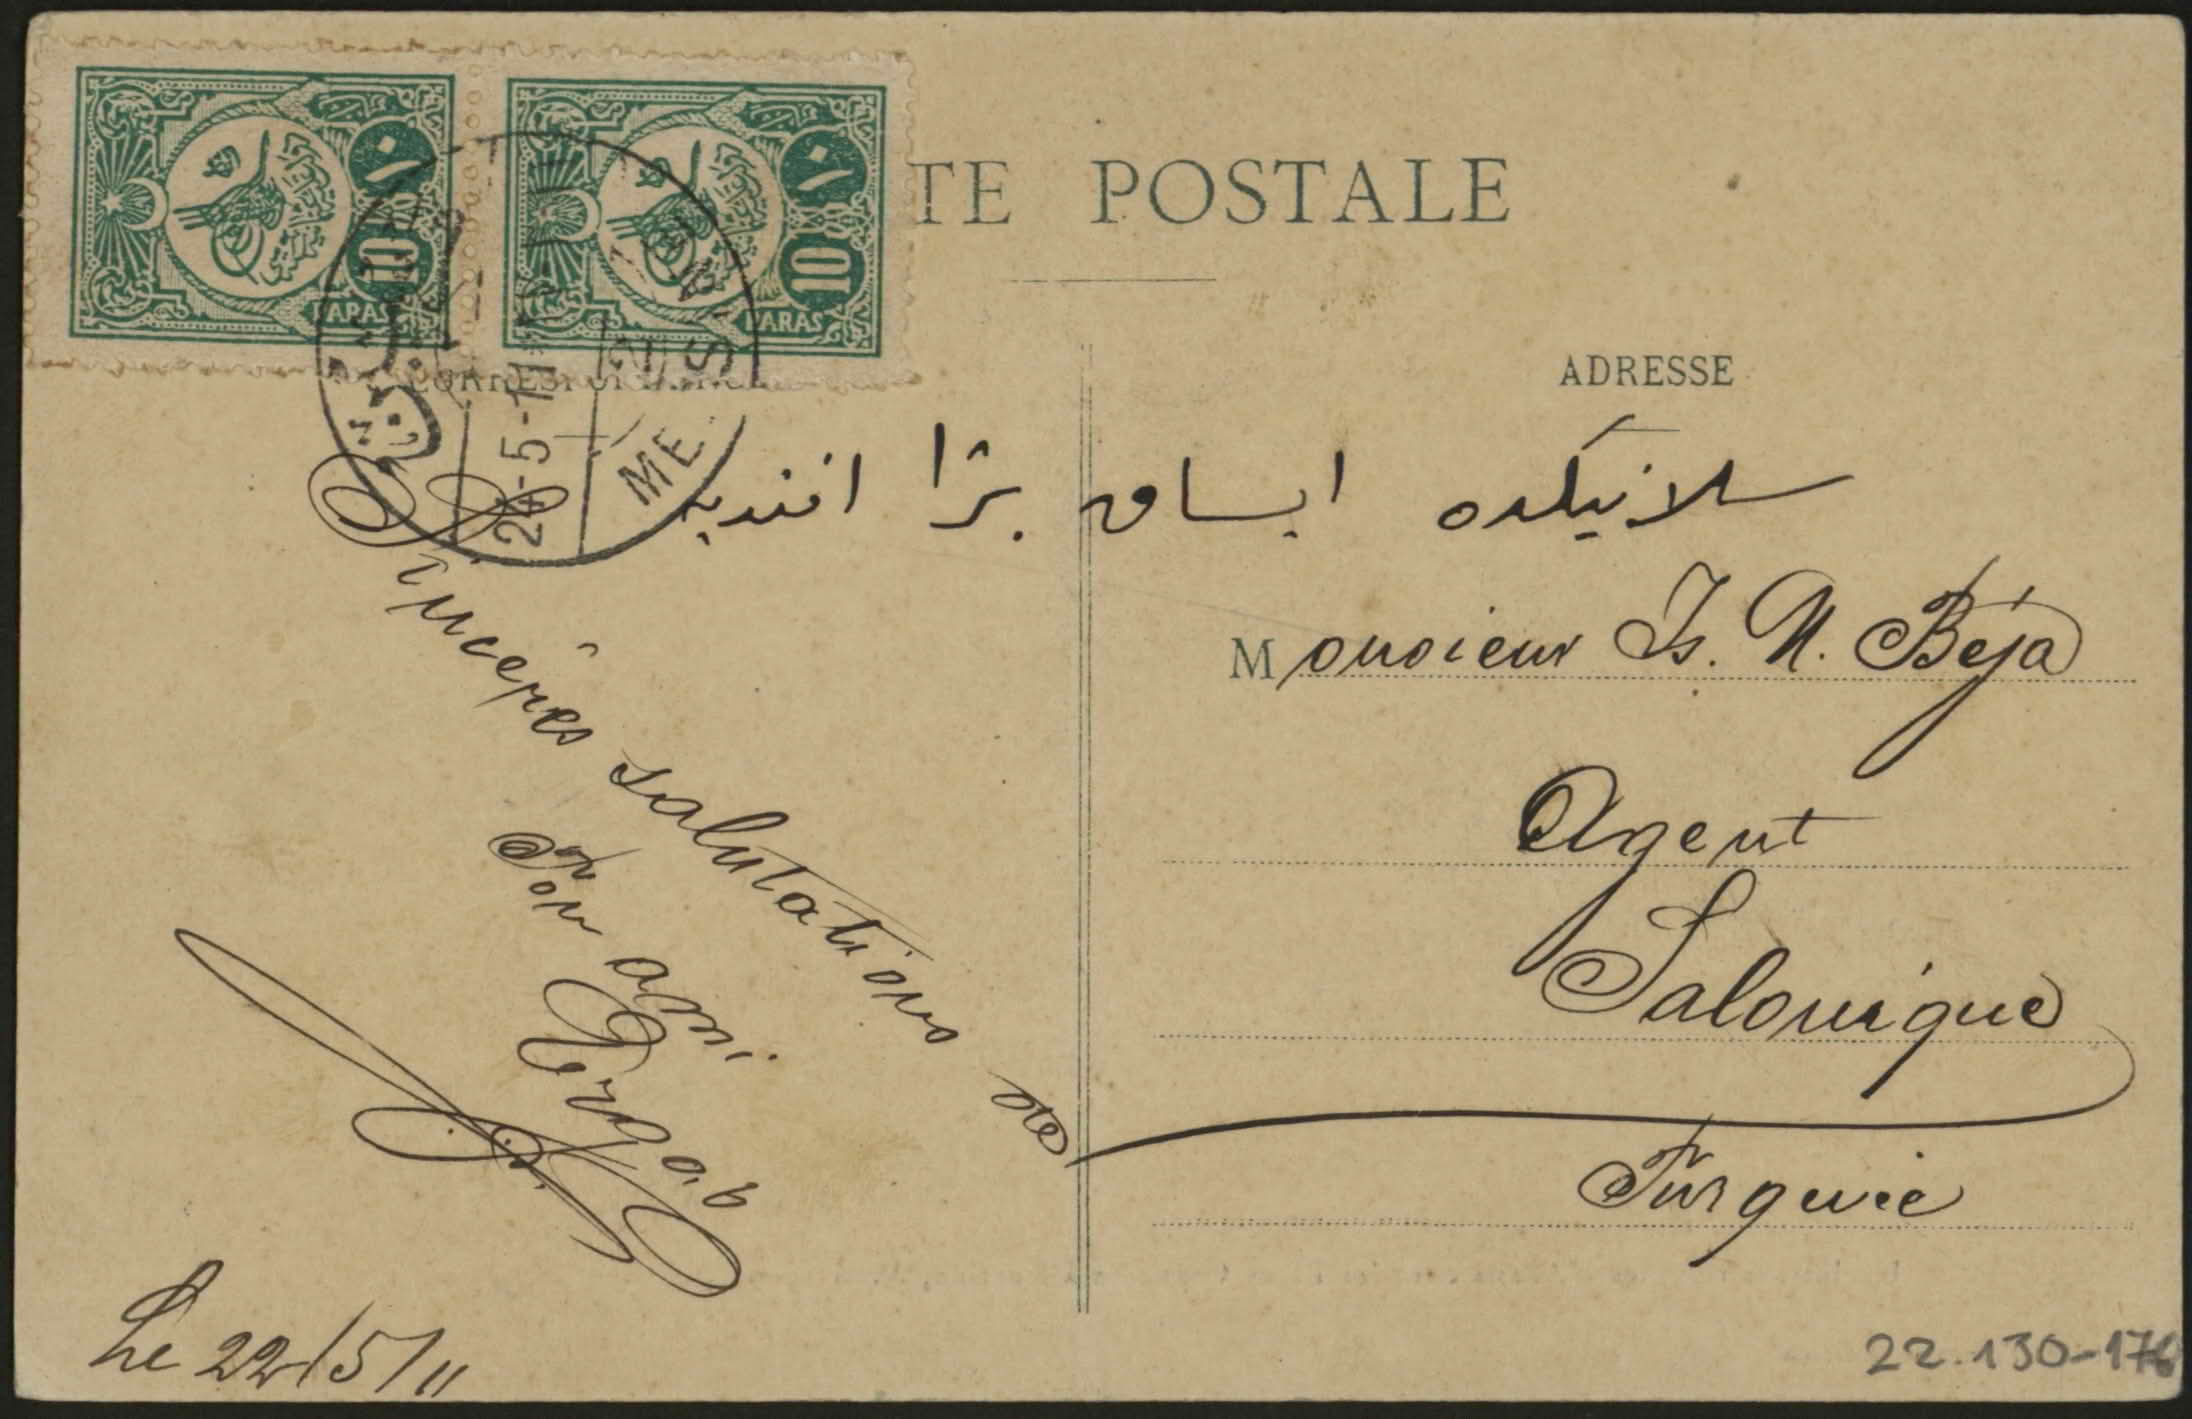 ١٠
10
PARAS
١٠
10
PARAS
TE POSTALE
CORRESPONDANCE
ADRESSE
24-5-11
سلانیکده ایساق بژا افندیه
Monsieur Is. N. Béja
Agent
Salonique
Turquie
Sincères salutations de
Ton ami
Le 22/5/11
22.130-176